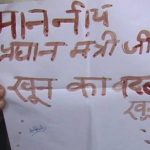 माननीय
प्रधान मंत्री जी
खून का बदला
खून